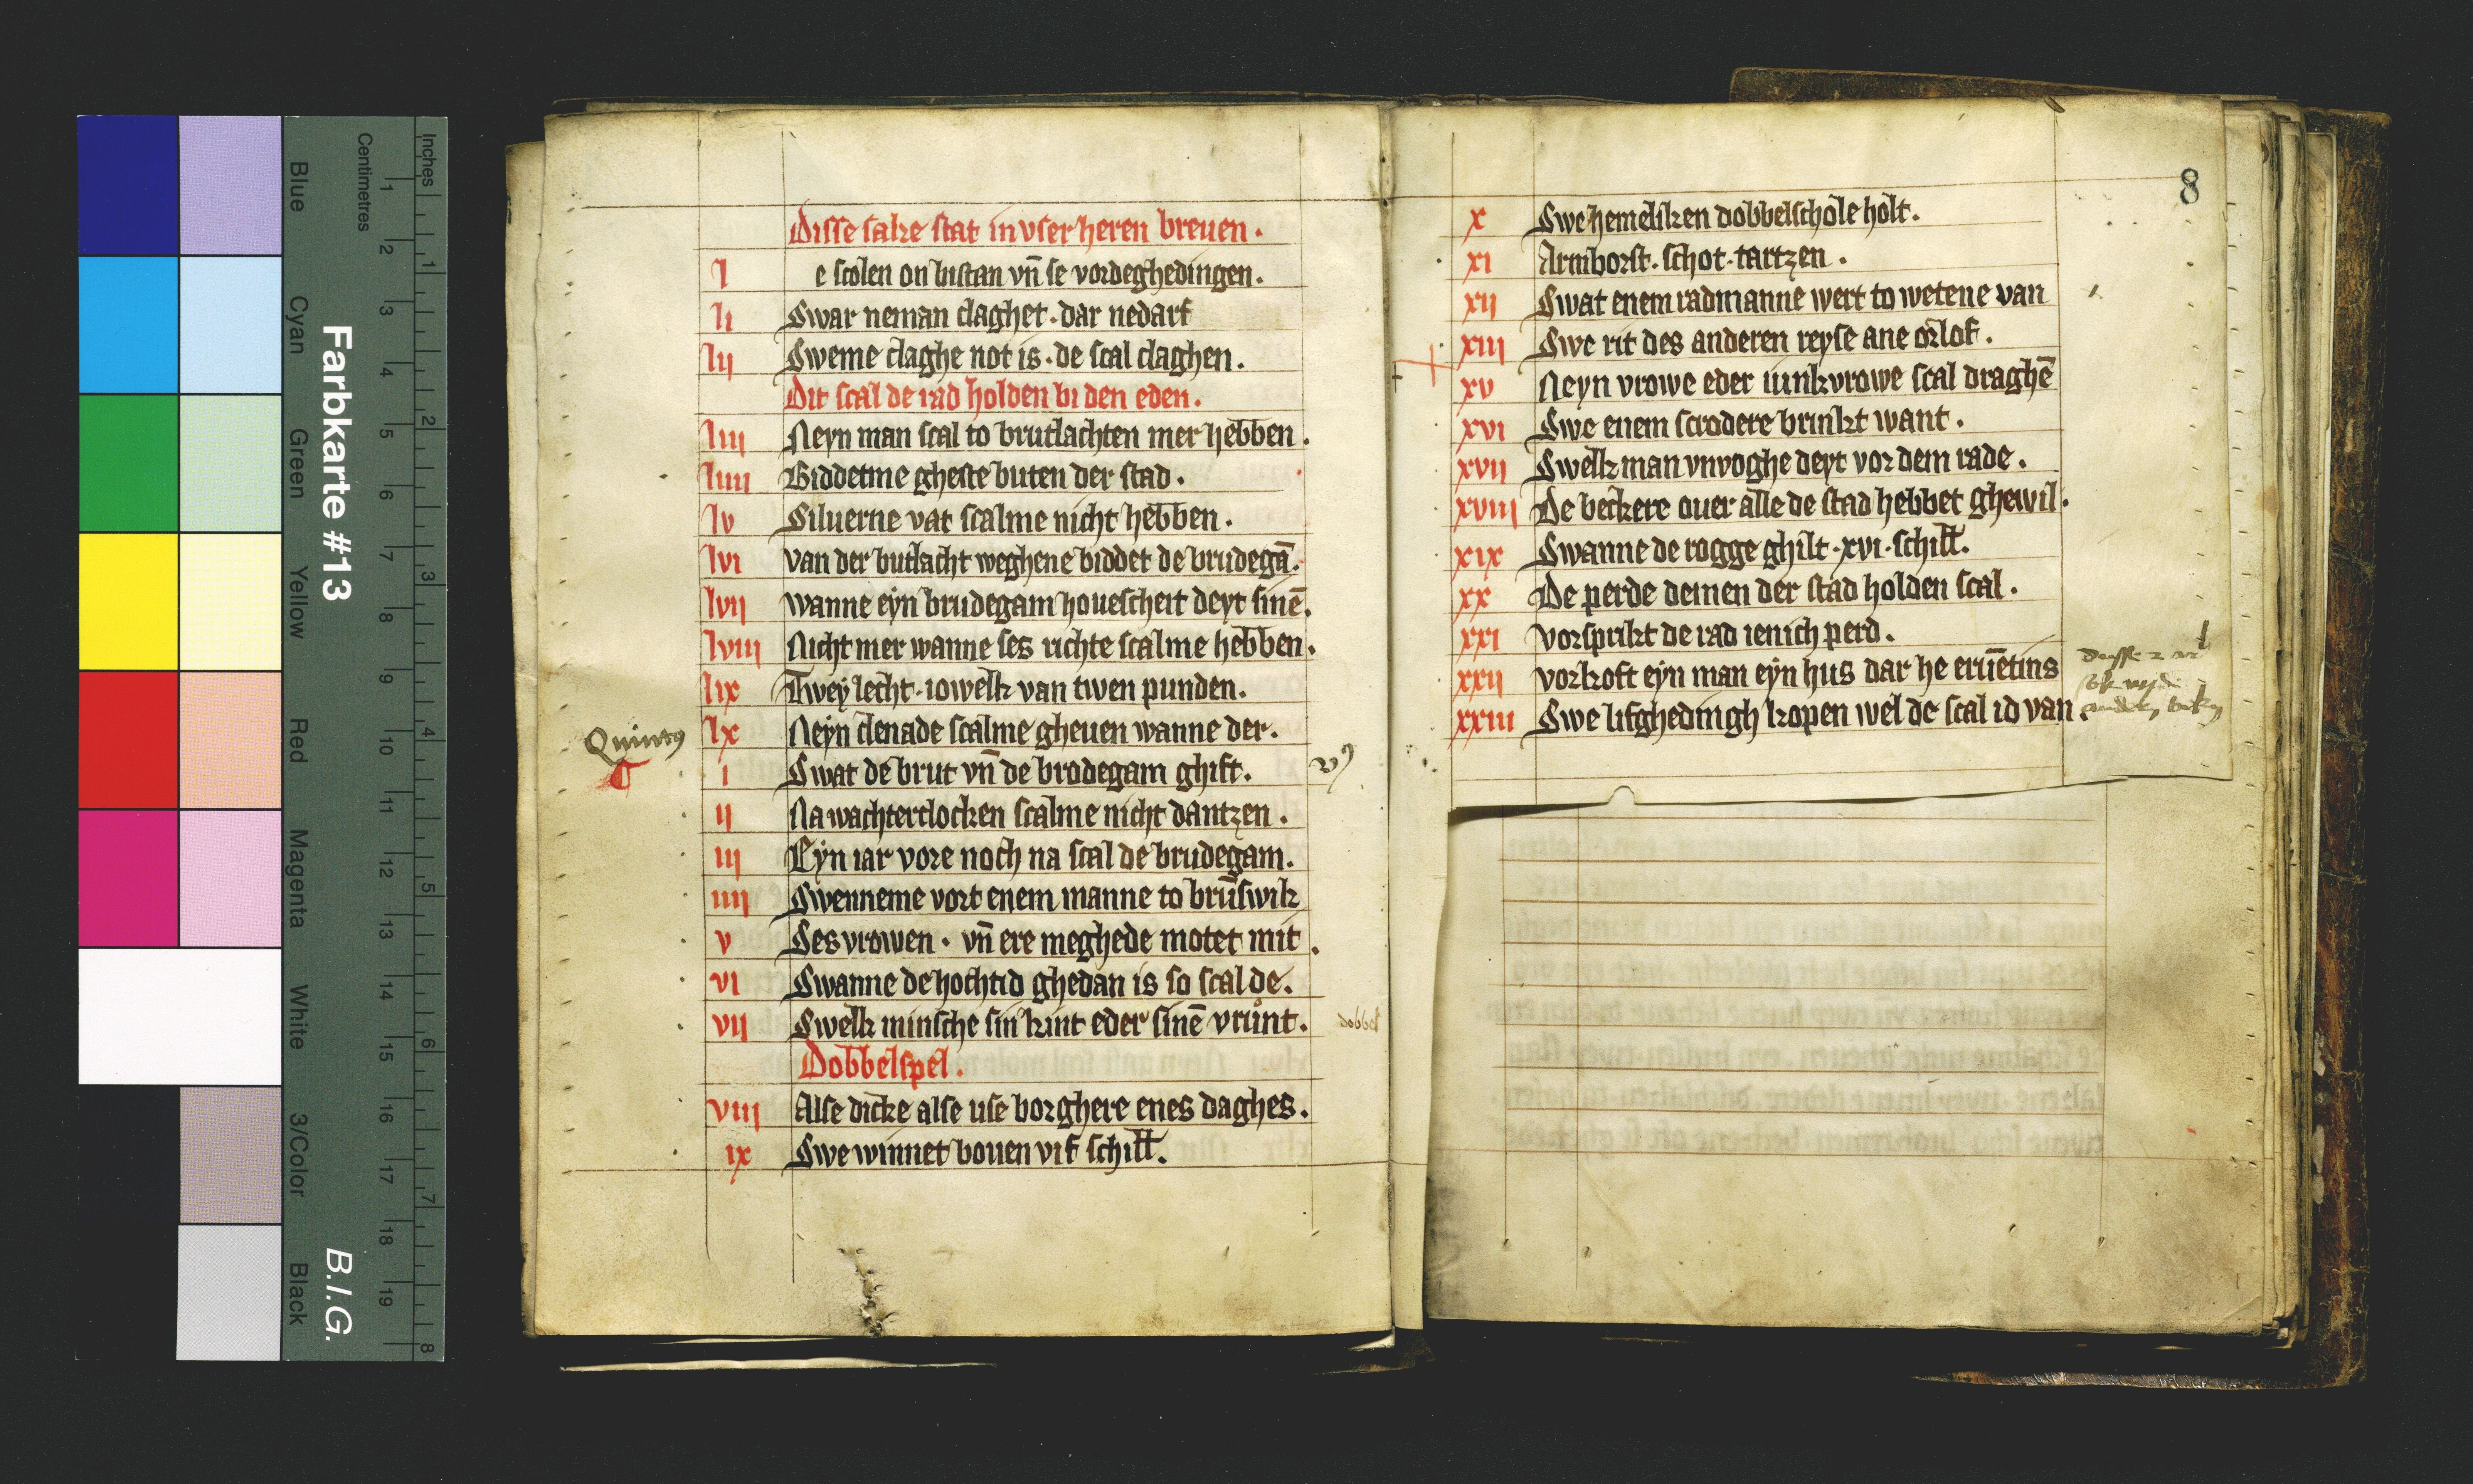 Disse sake stat in vser heren breuen.
l e scolen on bistan vn̄ se vordeghedingen.
li Swar neman claghet. dar nedarf
lij Sweme claghe not is. de scal claghen.
Dit scal de rad holden bi den eden.
liij Neyn man scal to brutlachten mer hebben.
liiij Biddetme gheste buten der stad.
lv Siluerne vat scalme nicht hebben.
lvi van der butlacht weghene biddet de brudegā.
lvij wanne eyn brudegam houescheit deyt sinē.
lviij Nicht mer wanne ses richte scalme hebben.
lix Twey lecht. iowelk van twen punden.
Quintus
lx Neyn clenade scalme gheuen wanne der.
i Swat de brut vn̄ de brodegam ghift.
ij Na wachterclocken scalme nicht dantzen.
iij Eyn iar vore noch na scal de brudegam.
iiij Swenneme vort enem manne to brūswik
v Ses vrowen. vn̄ ere meghede motet mit.
vi Swanne de hochtid ghedan is so scal de.
vij Swelk minsche sin kint eder sinē vrůnt.
Dobbelspel.
viij Alse dicke alse use borghere enes daghes.
ix Swe winnet bouen vif schill.
8
x Swe hemeliken dobbelschole holt.
xi Armborst. schot. tartzen.
xij Swat enem radmanne wert to wetene van
xiij Swe rit des anderen reyse ane orlof.
xv Neyn vrowe eder iunkvrowe scal draghē
xvi Swe enem scrodere brinkt want.
xvij Swelk man vnvoghe deyt vor dem rade.
xviij De beckere ouer alle de stad hebbet ghewil.
xix Swanne de rogge ghilt. xvi. schill.
xx De perde deinen der stad holden scal.
xxi vorsprikt de rad ienich perd.
xxij vorkoft eyn man eyn hus dar he eruētins
xxiij Swe lifghedingh kopen wel de scal id van.
Farbkarte #13
B.I.G.
Inches
Centimetres
1 2 3 4 5 6 7 8 9 10 11 12 13 14 15 16 17 18 19
1 2 3 4 5 6 7 8
Blue
Cyan
Green
Yellow
Red
Magenta
White
3/Color
Black